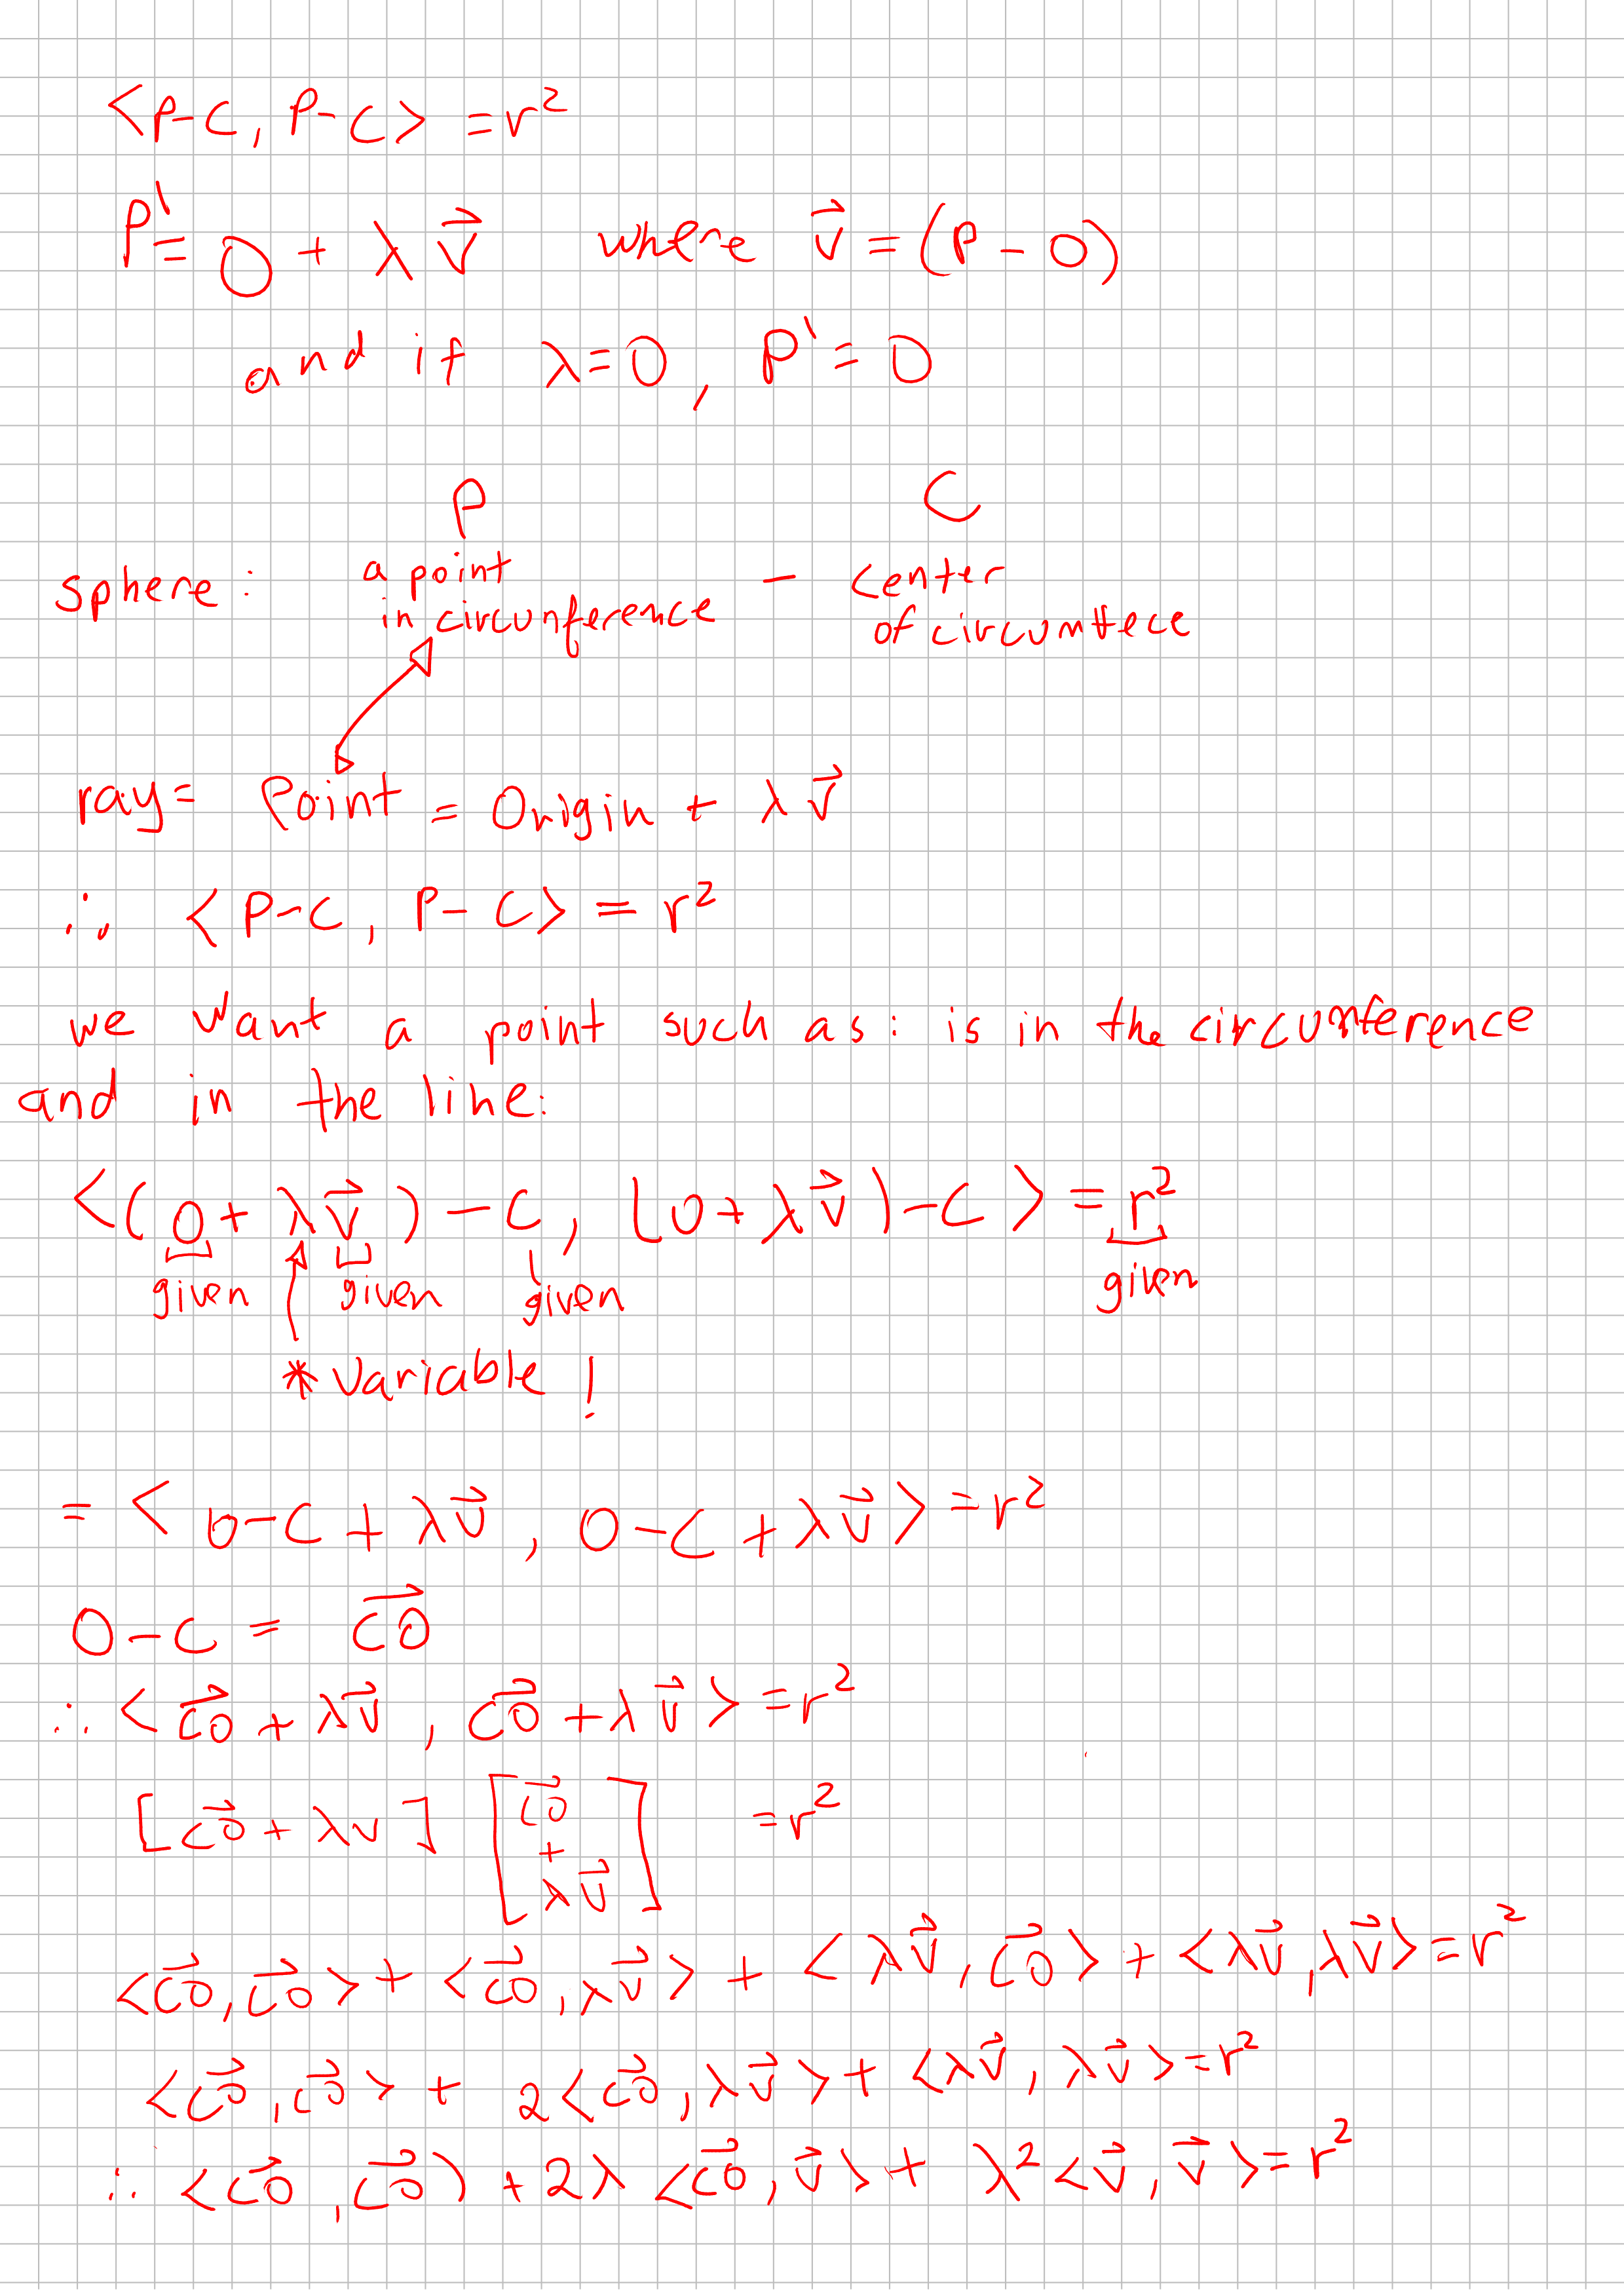 <P-C, P-C> = r²
P' = O + λ v⃗ where v⃗ = (P - O)
and if λ=0, P' = O
P C
sphere: a point in circunference - center
of circumttece
ray= Point = Origin + λ v⃗
∴ <P-C, P-C> = r²
we want a point such as: is in the circunference
and in the line:
<(O + λv⃗) - C, (O + λv⃗) - C> = r²
given given given given
* variable!
= <O-C + λv⃗, O-C + λv⃗> = r²
O-C = CO⃗
∴ <CO⃗ + λv⃗, CO⃗ + λv⃗> = r²
[CO⃗ + λv] [CO⃗ + λv⃗] = r²
<CO⃗, CO⃗> + <CO⃗, λv⃗> + <λv⃗, CO⃗> + <λv⃗, λv⃗> = r²
<CO⃗, CO⃗> + 2<CO⃗, λv⃗> + <λv⃗, λv⃗> = r²
∴ <CO⃗, CO⃗> + 2λ <CO⃗, v⃗> + λ² <v⃗, v⃗> = r²